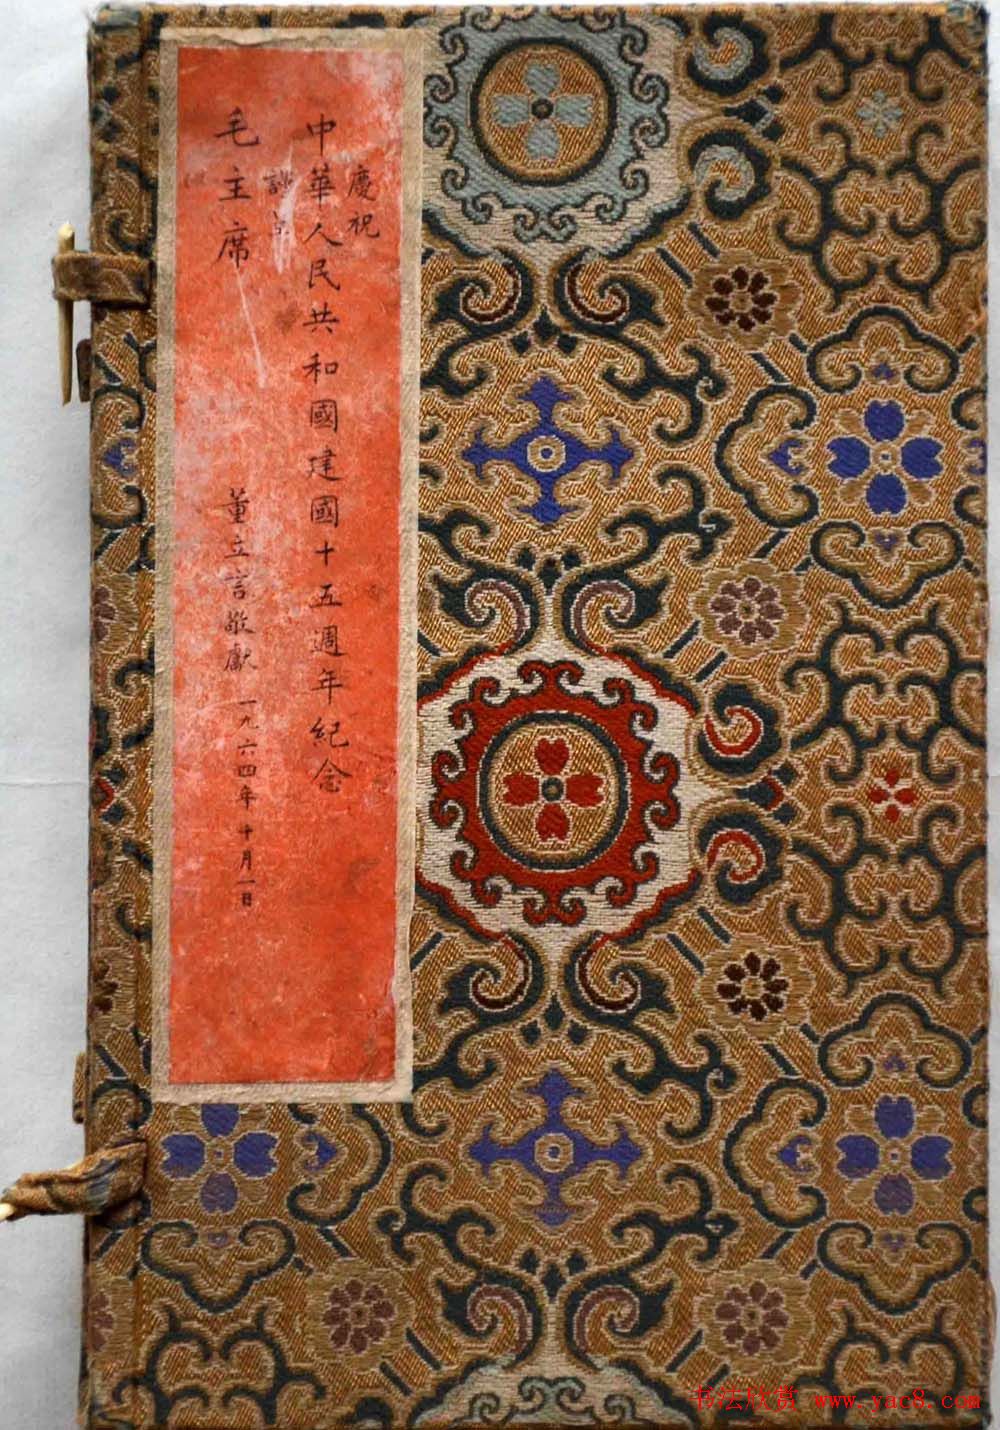 慶祝
中華人民共和國建國十五週年紀念
毛主席
董立言敬獻 一九六四年十月一日
书法欣赏 www.yac8.com